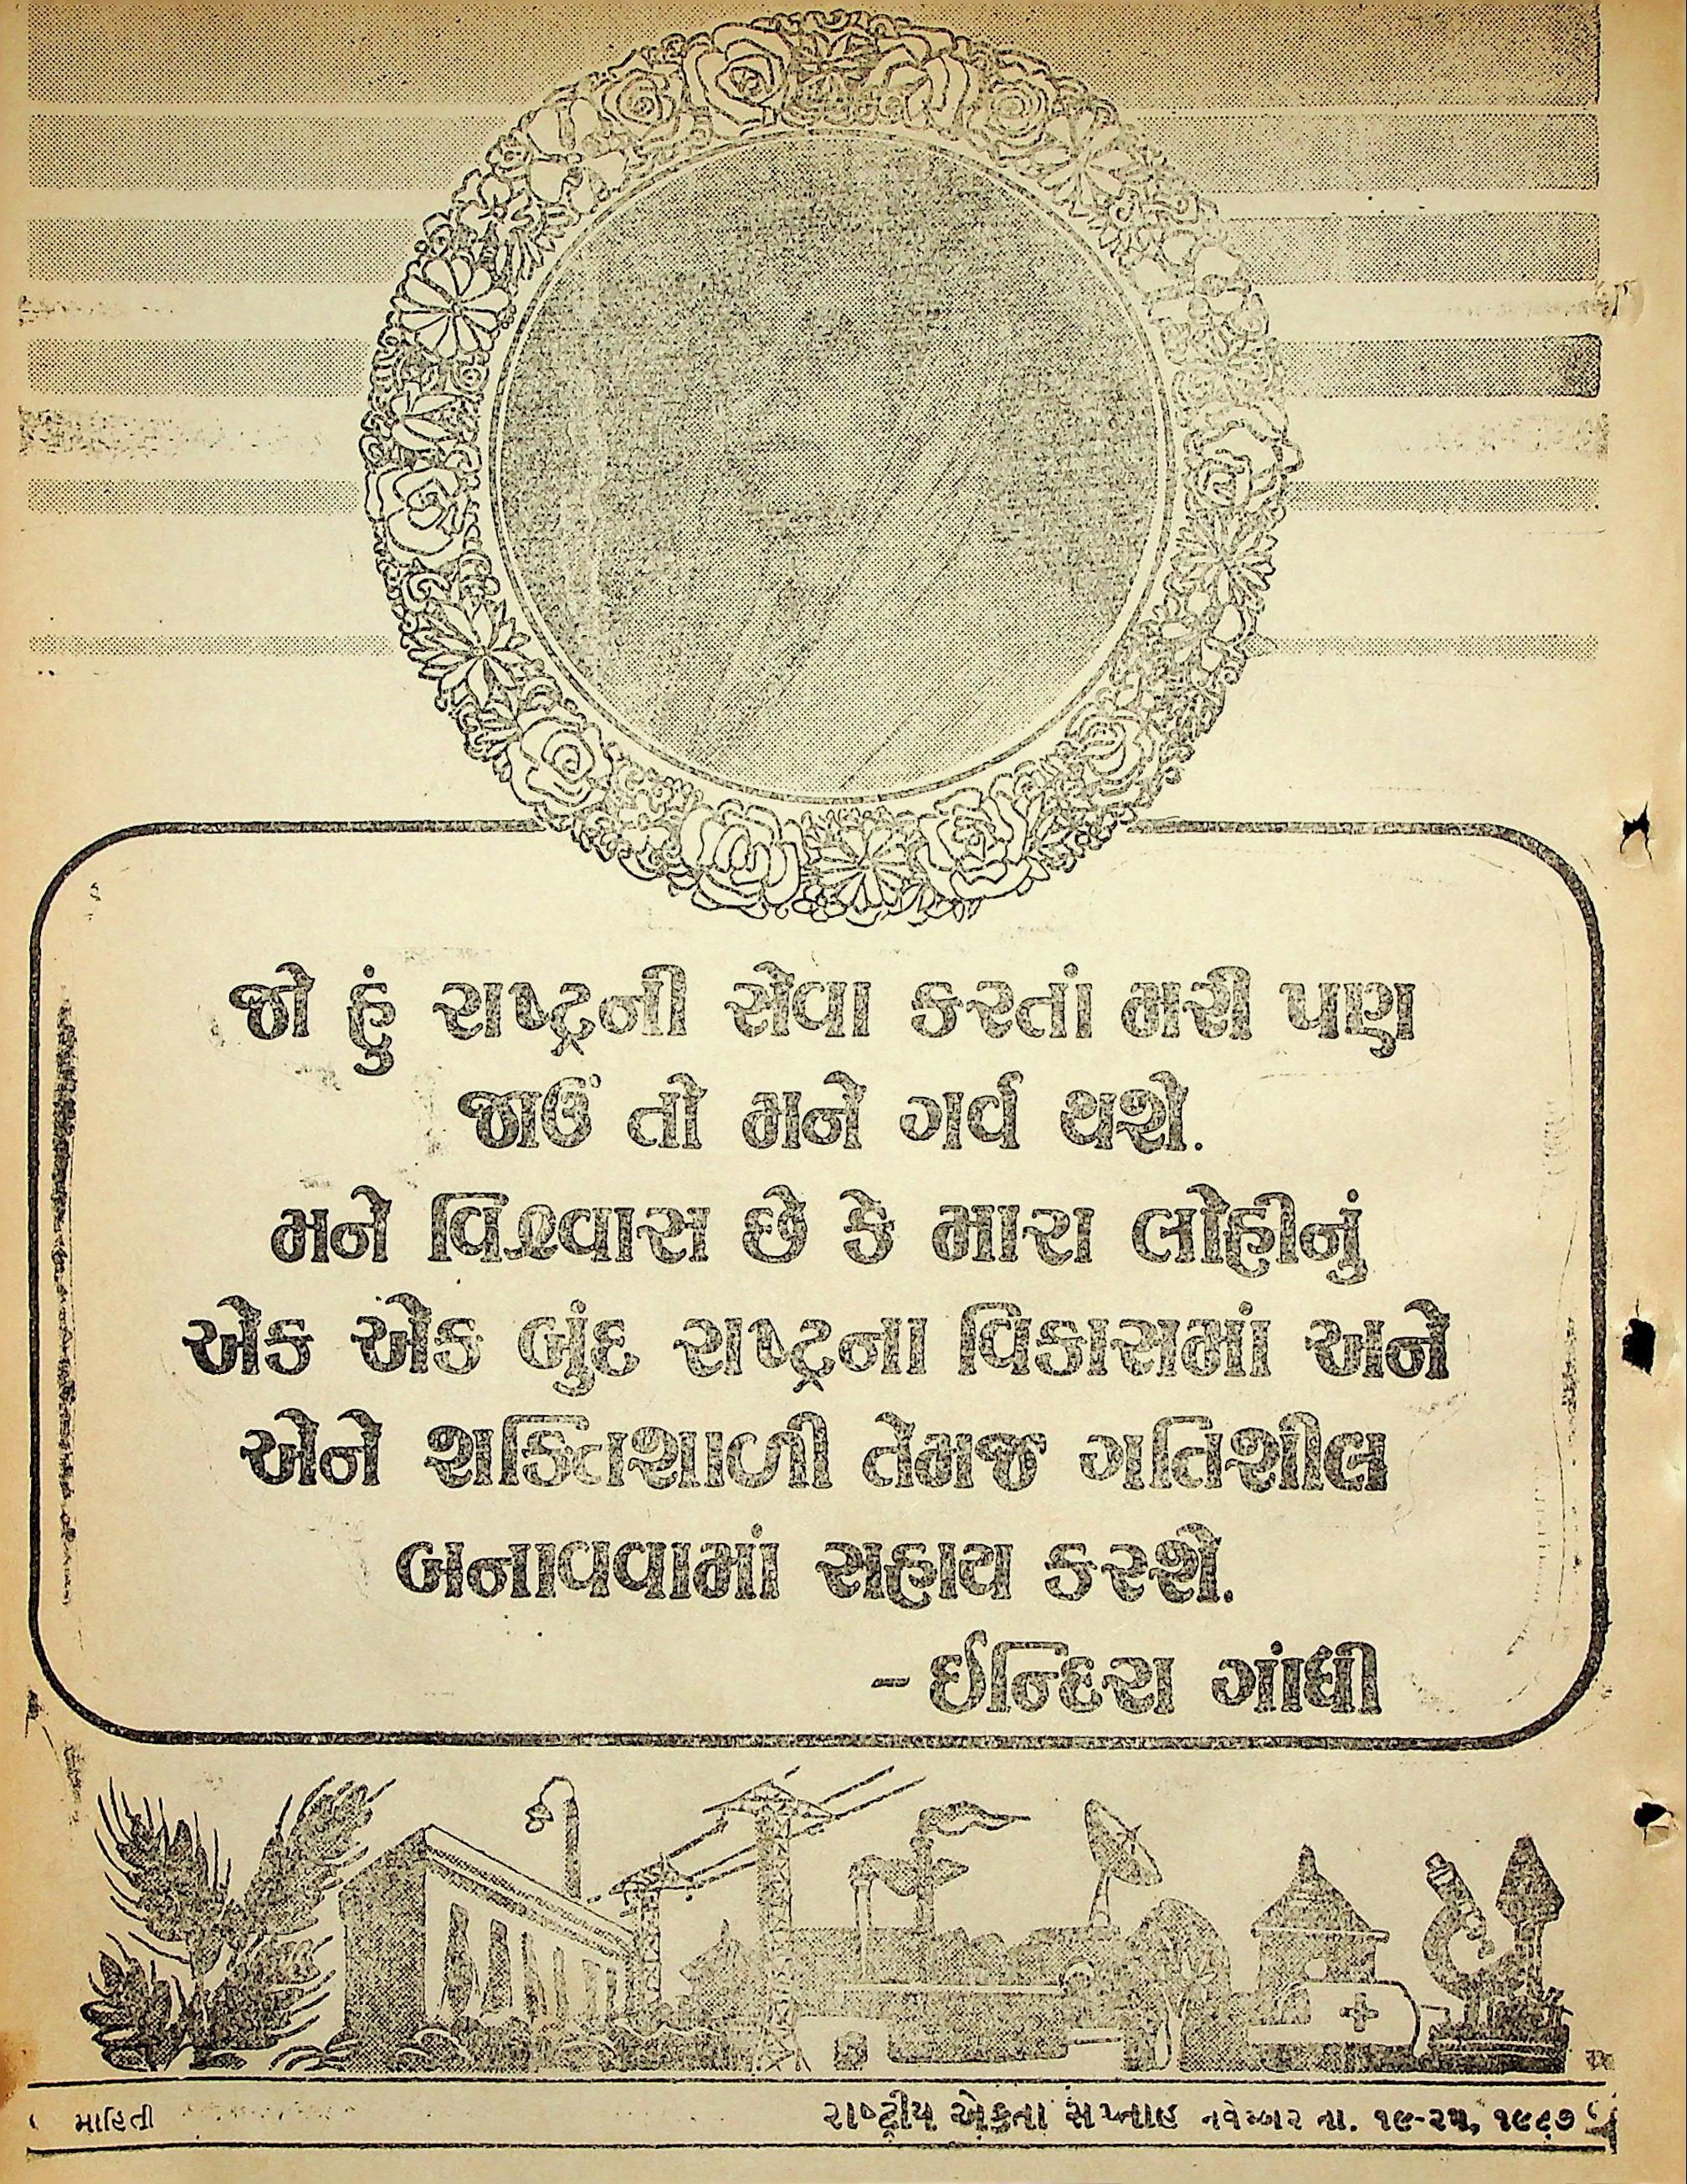 જો હું રાષ્ટ્રની સેવા કરતાં મરી પણ
જાઉં તો મને ગર્વ થશે.
મને વિશ્વાસ છે કે મારા લોહીનું
એક એક બુંદ રાષ્ટ્રના વિકાસમાં અને
એને શક્તિશાળી તેમજ ગતિશીલ
બનાવવામાં સહાય કરશે.
- ઈન્દિરા ગાંધી
માહિતી
રાષ્ટ્રીય એકતા સપ્તાહ નવેમ્બર તા. ૧૯-૨૫, ૧૯૮૭